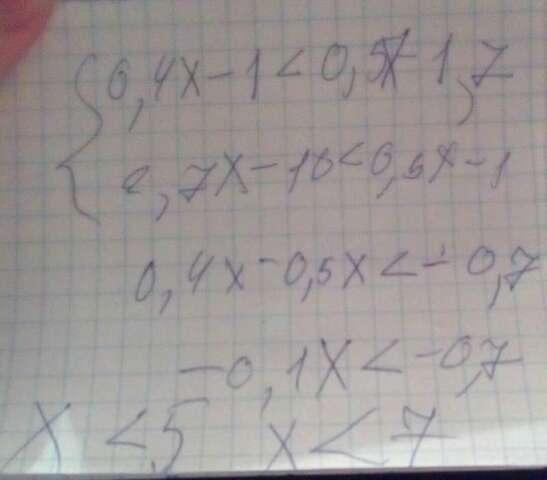 {0,4x-1<0,5x-1,7
0,7x-10<0,5x-1
0,4x-0,5x<-0,7
-0,1x<-0,7
x<5 x<7